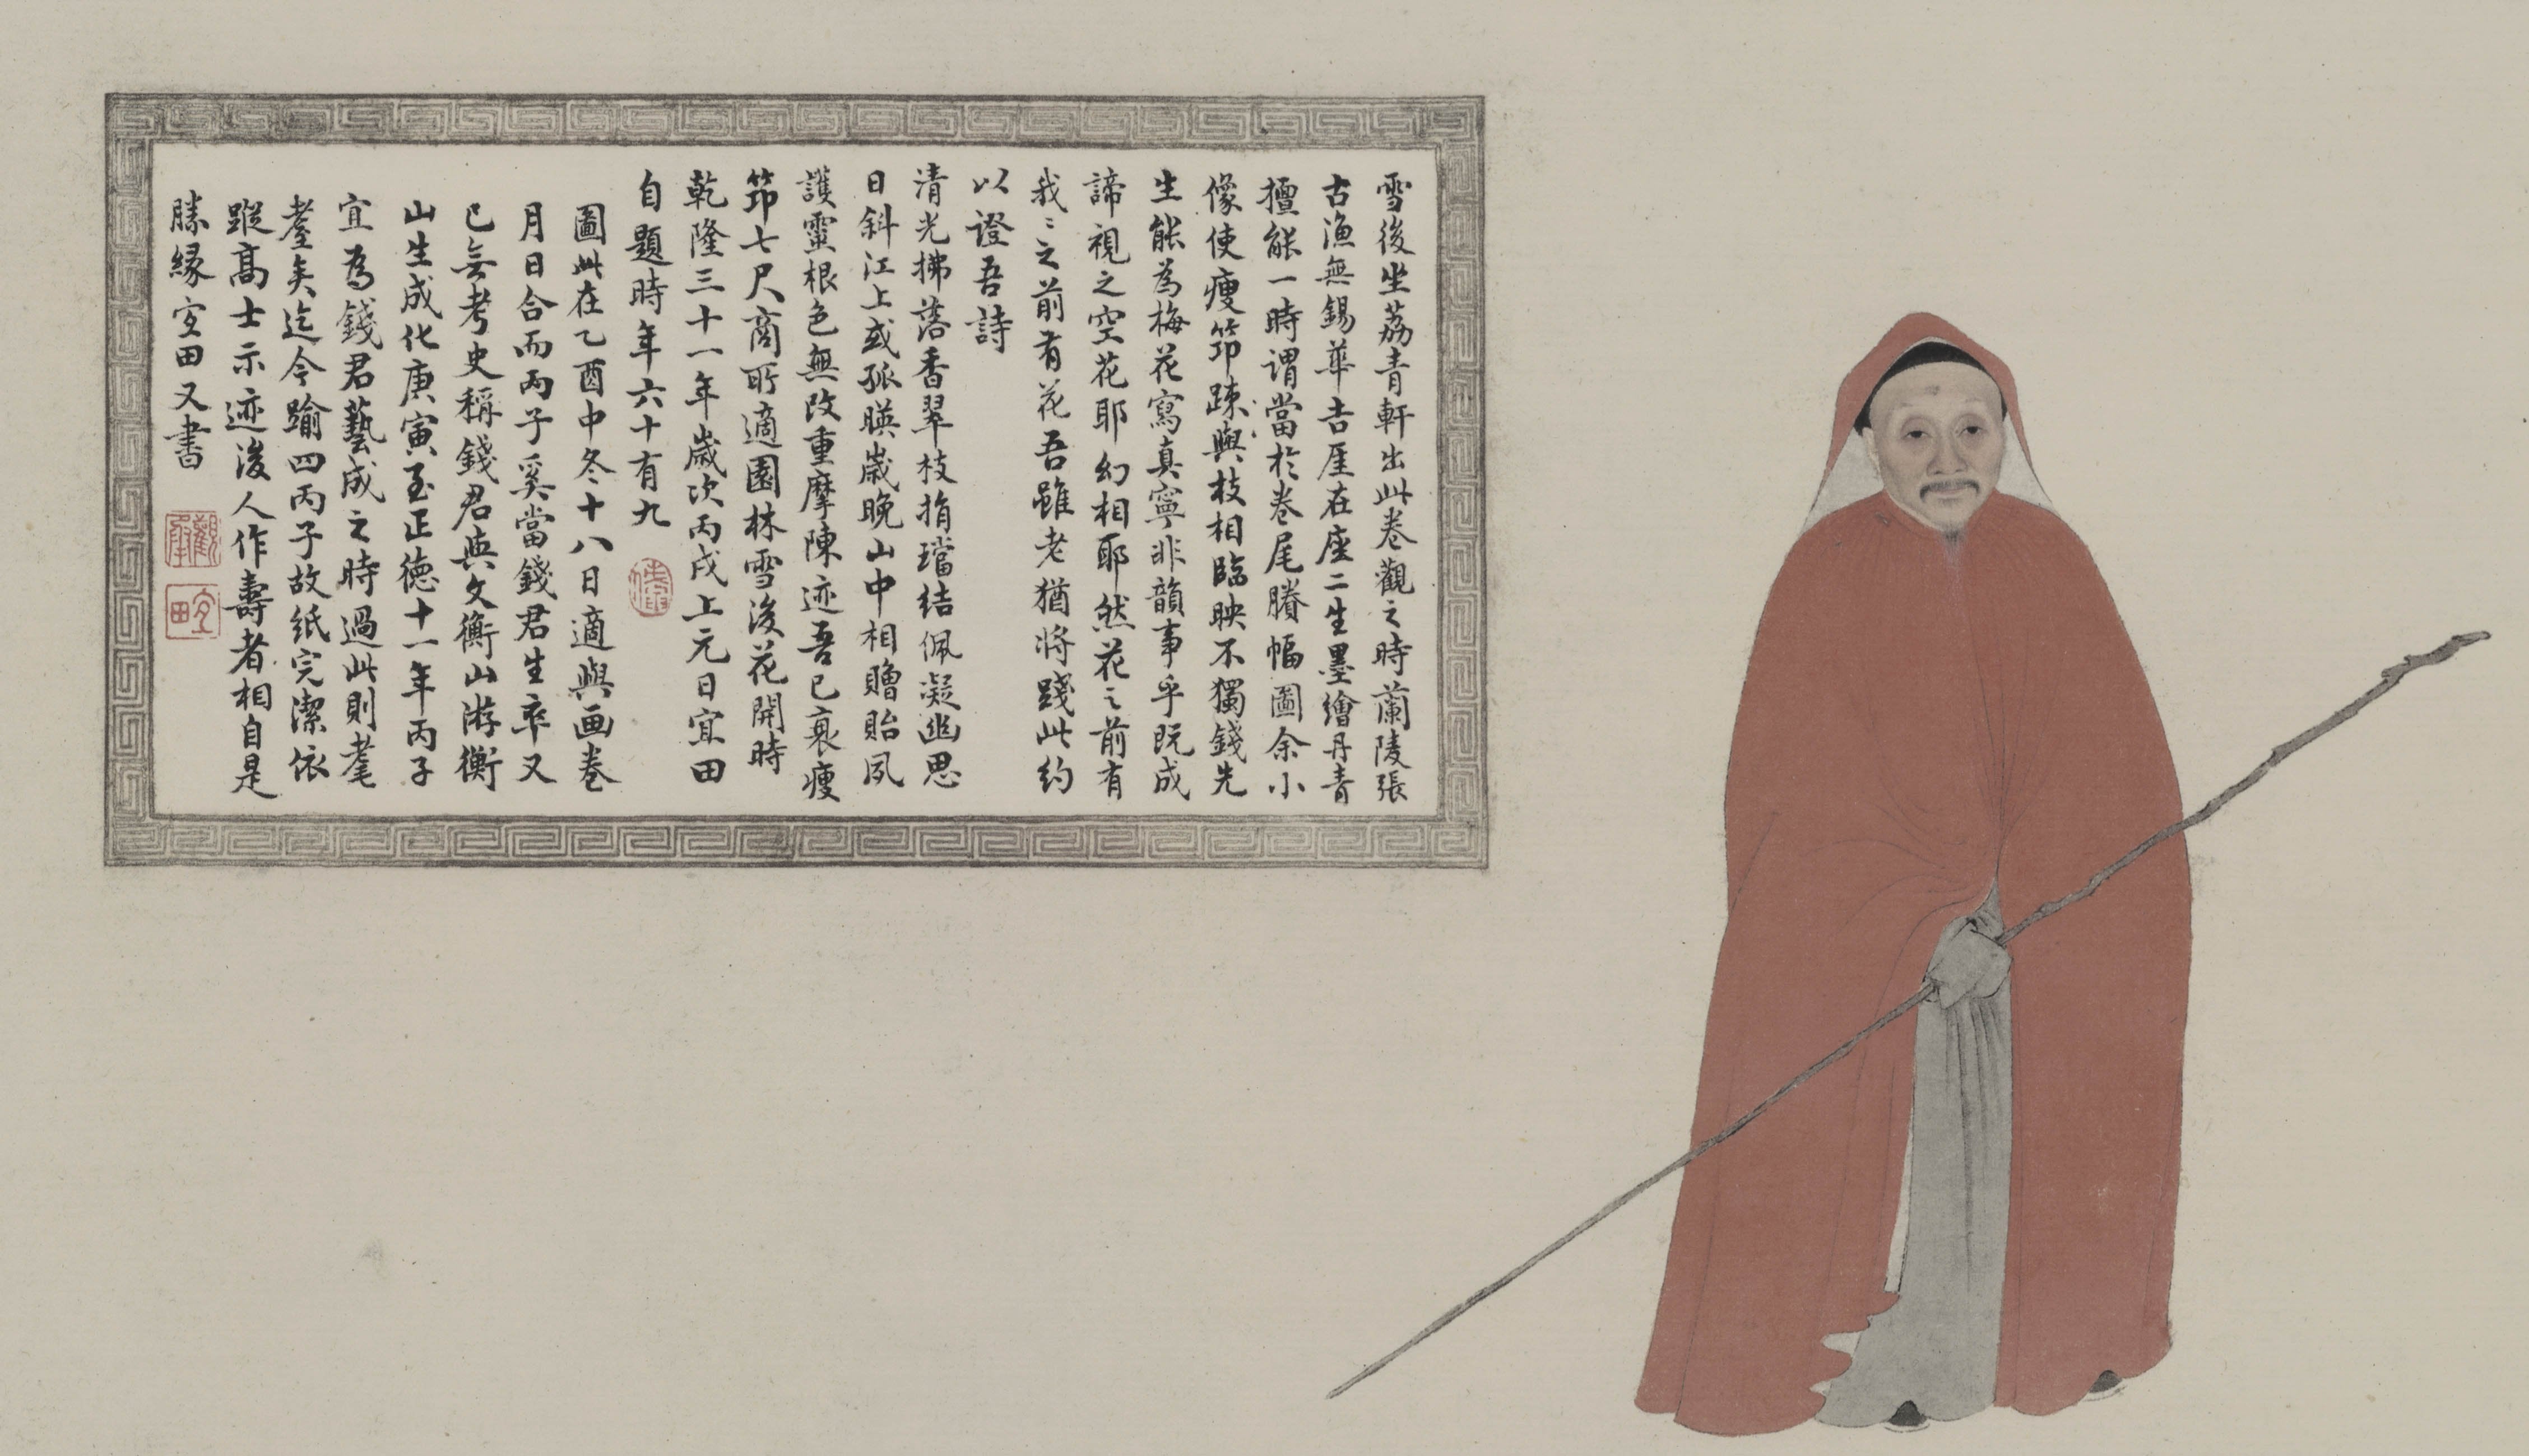 雪後坐荔青軒出此卷觀之時蘭陵張
古漁無錫華吉厓在座二生墨繪丹青
擅能一時謂當於卷尾賸幅圖余小
像使瘦笻疎與枝相臨映不獨錢先
生能為梅花寫真寧非韻事乎既成
諦視之空花耶幻相耶然花〻前有
我〻之前有花吾雖老猶將踐此約
以證吾詩
清光拂落香翠枝捎璫結佩凝幽思
日斜江上或孤暎歲晚山中相贈貽夙
護靈根色無改重摩陳迹吾已衰瘦
笻七尺商所適園林雪後花開時
乾隆三十一年歲次丙戌上元日宜田
自題時年六十有九
圖此在乙酉中冬十八日適與画卷
月日合而丙子奚當錢君生卒又
已無考史稱錢君與文衡山游衡
山生成化庚寅至正德十一年丙子
宜為錢君藝成之時過此則耄
耋矣迄今踰四丙子故紙完潔依
蹤高士示迹後人作壽者相自是
勝緣宜田又書
觀承
宜田